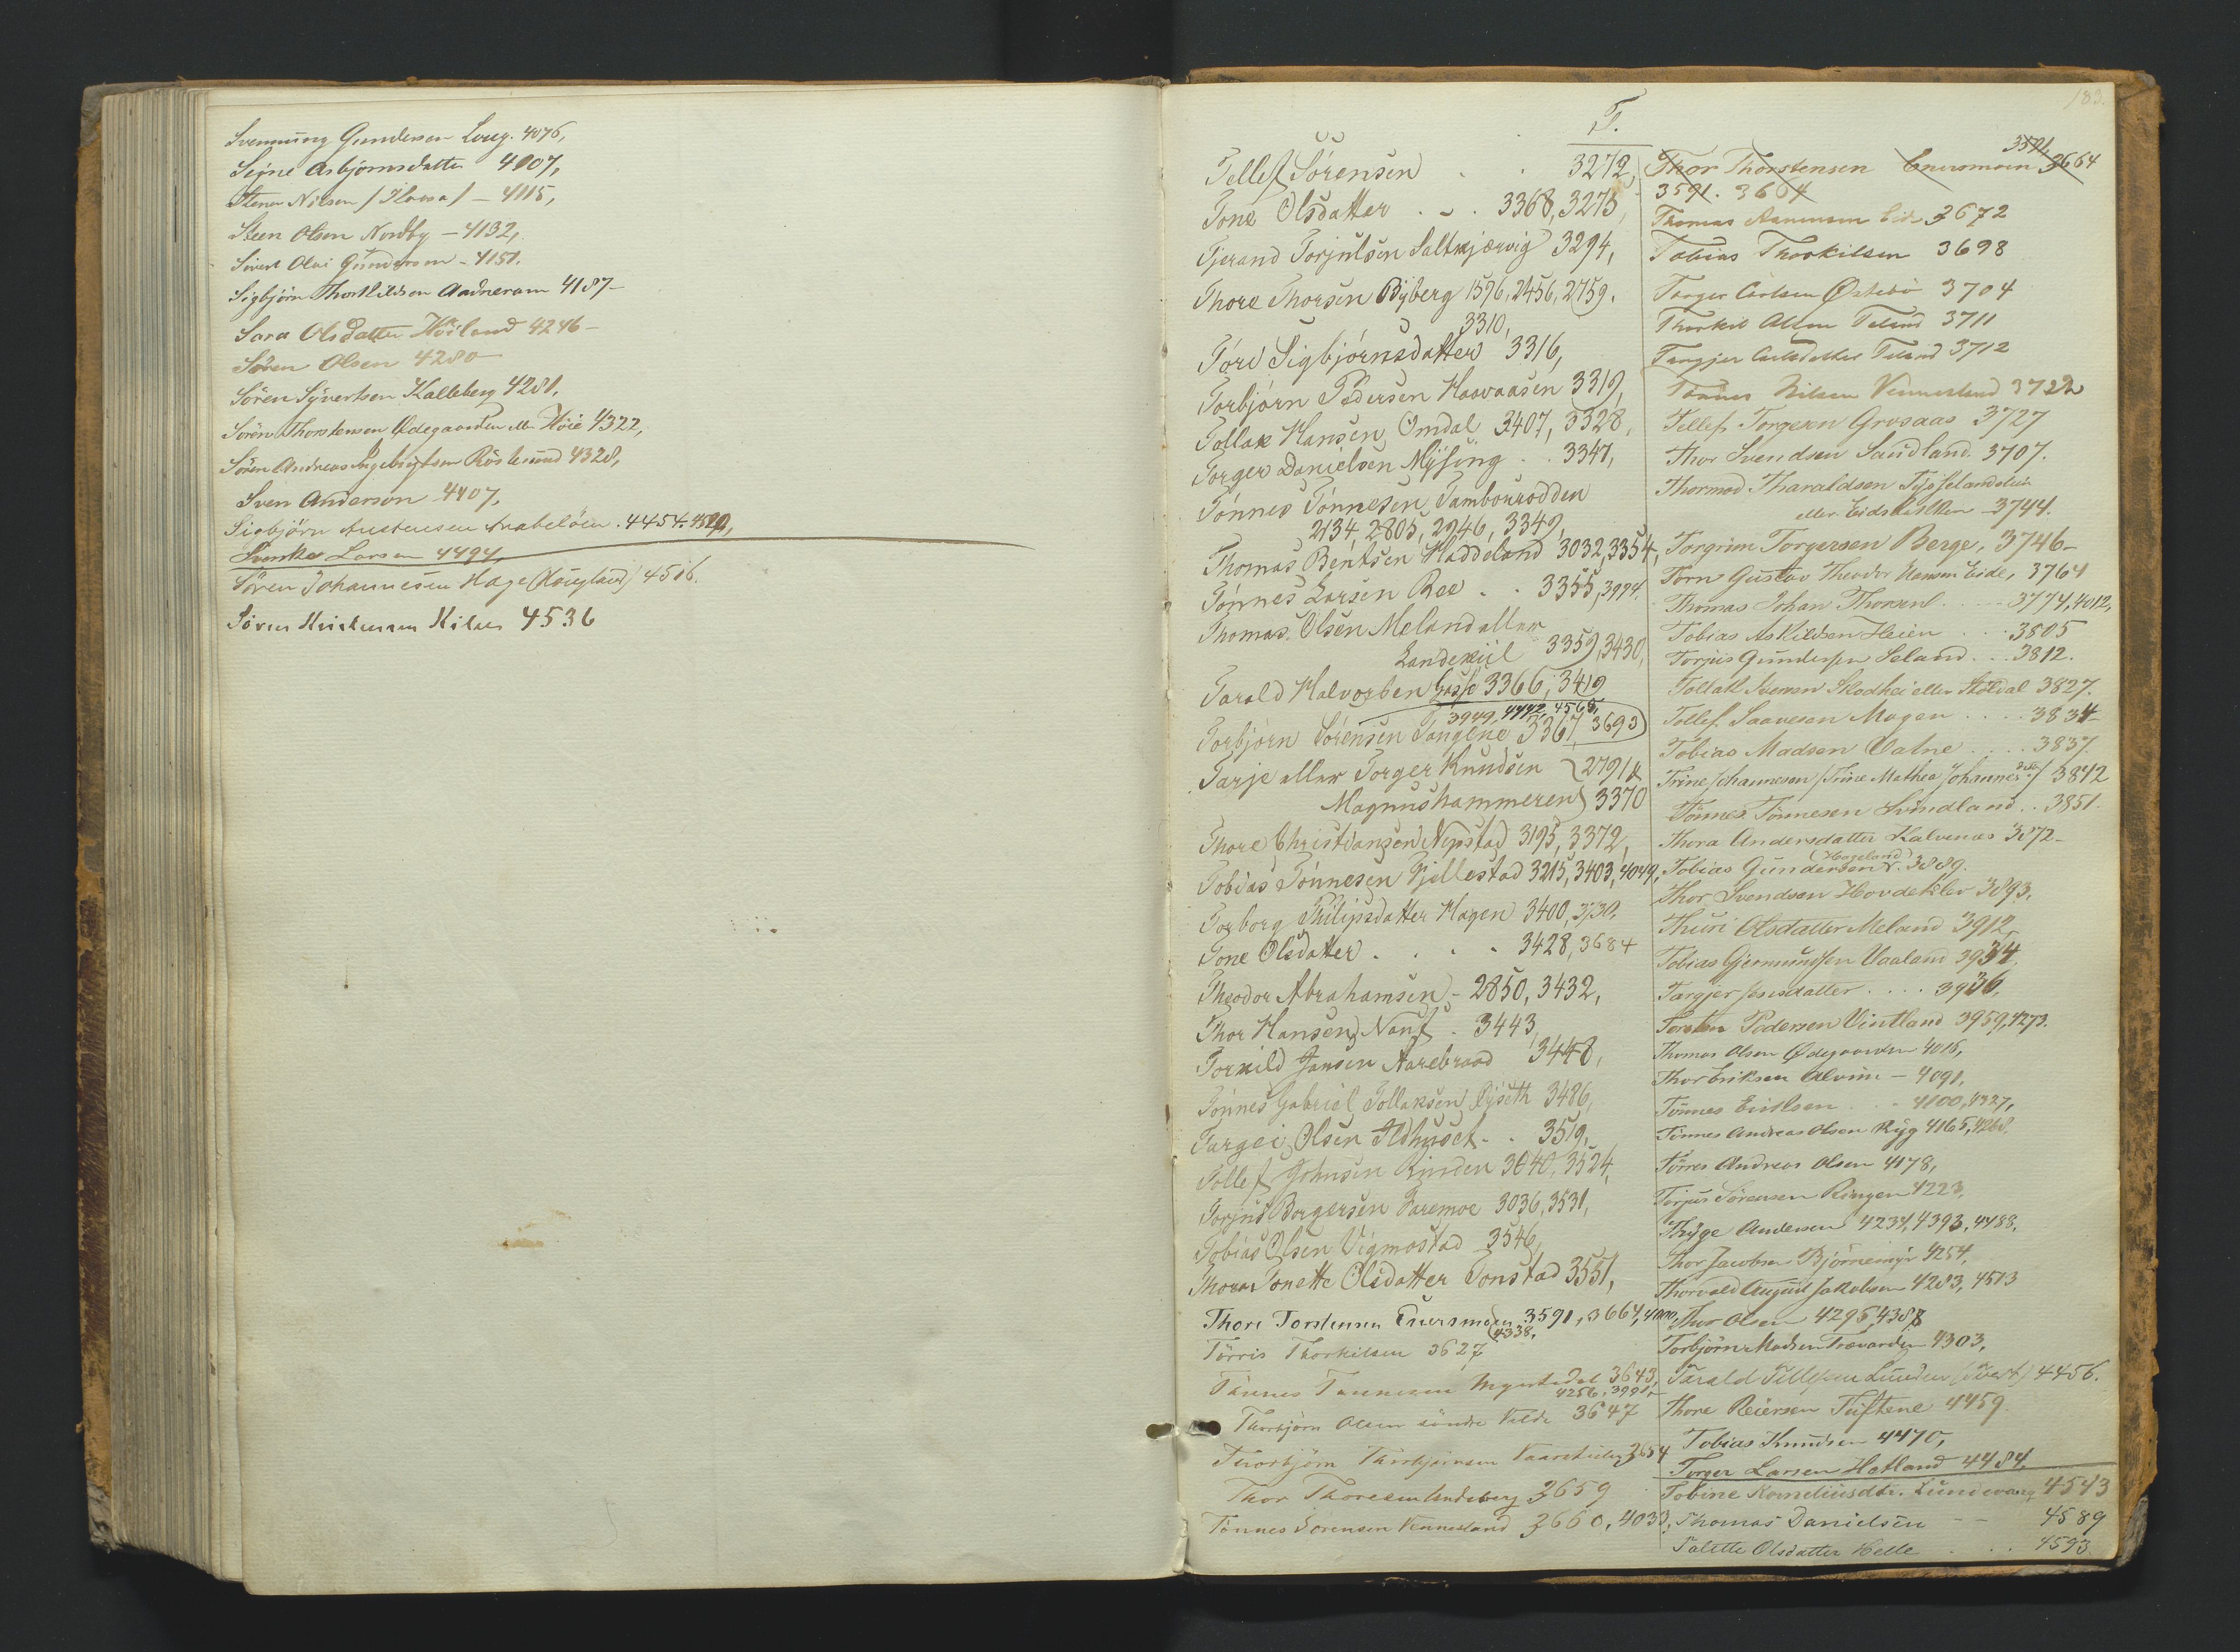 Svennung Gundersen Loug. 4076,
Signe Asbjørnsdatter 4007,
Stener Nilsen / / - 4115,
Steen Olsen Nordby - 4132,
Sivert Olai Gunderson - 4151.
Sigbjörn Thorkildsen Aadneram 4187-
Sara Olsdatter Høiland 4246-
Sören Olsen 4280
Sören Syvertsen Kalleberg 4281,
Sören Thorstensen Ødegaarden eller Høie 4322,
Sören Andreas Ingebrigtsen Röstesund 4328,
Sven Anderson 4407,
Sigbjörn 4454. 4529,
Larsen 4494,
Sören Johannesen Hage (Hougland) 4516.
Sören Kristensen 4536
183.
T.
Tellef Sörensen . . 3272,
Tone Olsdatter . - . 3368, 3275,
Tjerand Torjulsen Saltkjærvig 3294,
Thore Thorsen Byberg 1596, 2456, 2759.
3310,
Tore Sigbjörnsdatter 3316,
Torbjörn Pedersen Haavaasen 3319,
Tollak Hansen Omdal 3407, 3328,
Torger Danielsen Mysing . . 3347,
Tönnes Tönnesen Tambourodden
2134, 2805, 2946, 3349,
Thomas Bentsen Haddeland 3032, 3354,
Tönnes Larsen Ree . . 3355, 3994.
Thomas Olsen Meland eller
Landekiil 3359, 3430,
Tarald Halvorsen Gaase 3366, 3419
3949, 4442, 4568,
Torbjörn Sörensen Tangene 3367, 3693
Tarje eller Torger Knudsen 2791 &
Magnushammeren 3370
Thore Christiansen Nepstad 3195, 3372,
Tobias Tönnesen Fjellestad 3215, 3403, 4049,
Torborg Philipsdatter Hagen 3400, 3730,
Tone Olsdatter . . . . 3428, 3684
Theodor Abrahamsen - 2850, 3432,
Thor Hansen Nauf . 3443,
Torkild Jansen Aarebraad 3448,
Tönnes Gabriel Tollaksen Ryseth 3486,
Targei Olsen Ildhuset . . 3519,
Tollef Johnsen Rinden 3040, 3524,
Torjus Borgersen Faremoe 3036, 3531,
Tobias Olsen Vigmostad 3546,
Thora Tonette Olsdatter Tonstad 3551,
Thore Torstensen Enersmoen 3591, 3664, 4000,
4338,
Törris Thorkilsen 3627
Tönnes Tønnesen 3643,
4256, 3991,-
Thorbjörn Olsen söndre Velde 3647
Thorbjörn Thorbjörnsen 3654
Thor Thoresen Andeberg 3659
Tönnes Sörensen Vennesland 3660, 4033,
3591,
Thor Thorstensen Enersmoen 3664
3591. 3664
Thomas Aanensen Eide 3672
Tobias Thorkilsen 3698
Torger Carlsen Østebö 3704
Thorkil Olsen Teland 3711
Torgjer Carlsdatter Teland 3712
Tönnes Nilsen Vennesland 3722
Tellef Torgersen Grosaas 3727
Thor Svendsen Sandland. 3707.
Thormod Tharaldsen
eller 3744.
Torgrim Torgersen Berge, 3746-
Torn Gustav Theodor Hansen Eide, 3764
Thomas Johan Thorsen . . . . 3774, 4012,
Tobias Askildsen Heien . . . 3805
Torjus Gundersen Seland . . . 3812.
Tollak Svensen Skodhei eller Stöldal 3827.
Tollef Saavesen Mogen . . . . 3834-
Tobias Madsen Valne . . . . 3837.
Trine Johannesen / Trine Mathea Johannesdtr. / 3842
Tönnes Tönnesen Svindland . . 3851.
Thora Andersdatter Kalvenes 3872-
(Hageland)
Tobias Gundersen . 3889.
Thor Svendsen Hovdeklev 3893,
Thuri Olsdatter Meland 3912,
Tobias Gjermundsen Vaaland 3934.
Targjer Jensdatter . . . . 3936,
Torsten Pedersen Vintland 3959, 4273.
Thomas Olsen Ødegaarden 4016,
Thor Eriksen Alvim - 4091,
Tönnes Eriksen . . - 4100, 4327,
Tönnes Andreas Olsen Ryg 4165, 4260,
Törres Andreas Olsen 4178,
Torjus Sörensen Ringen 4223,
Thyge Andersen 4234, 4393, 4488,
Thor Jacobsen Björnemyr 4254,
Thorvald August Jakobsen 4283, 4513
Thor Olsen 4296, 4387
Torbjörn Madsen Trævarden 4303,
Tarald Tellefsen Lunden (Tveit) 4456.
Thore Reiersen Tuftene 4459.
Tobias Knudsen 4470,
Torger Larsen Hatland 4484,
Tobine Korneliusdtr. Lundevang 4543
Thomas Danielsen - - 4589
Talette Olsdatter Helle . . . 4593.